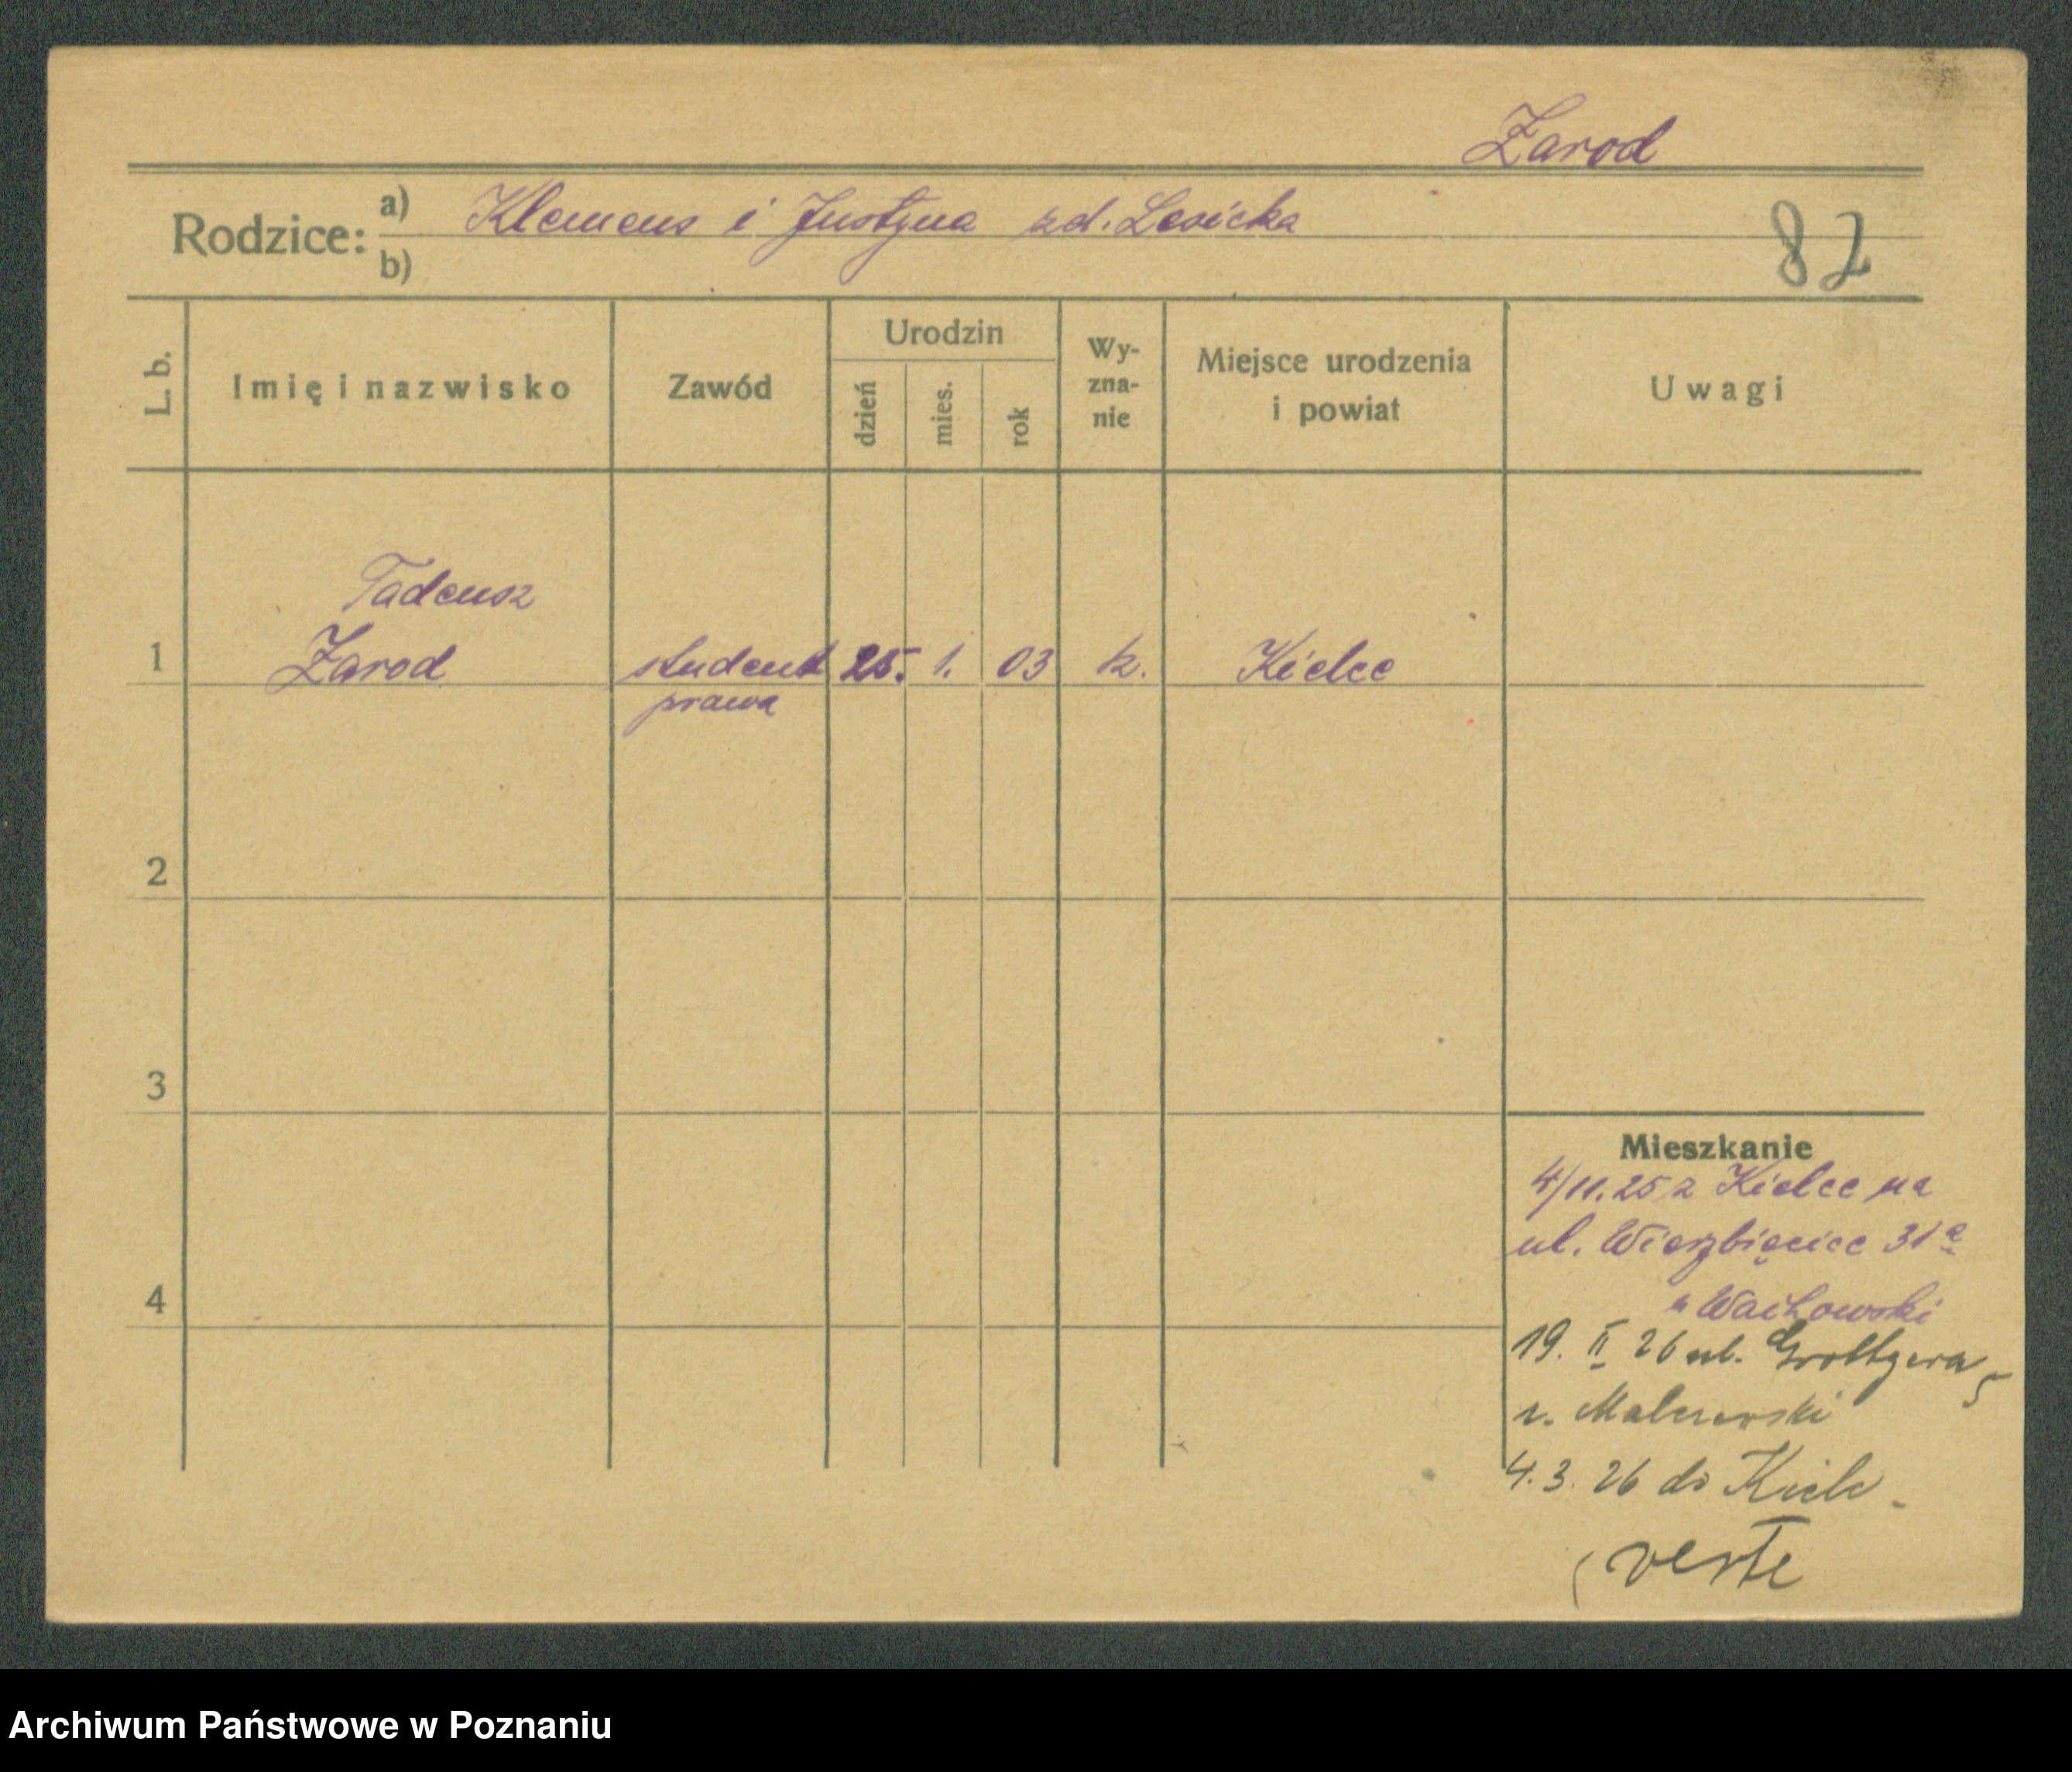 Żarod
Rodzice: a) Klemens i Justyna zd. Lesicka
b)
82
L. b. Imię i nazwisko Zawód Urodzin dzień mies. rok Wy-zna-nie Miejsce urodzenia i powiat Uwagi
Tadeusz
1 Żarod student 25. 1. 03 k. Kielce
prawa
2
3
Mieszkanie
4/11.25 z Kielce na
ul. Wierzbięcice 31a
4
u Wachowski
19. II 26 ul. Grottgera 5
Malczewski
4.3.26 do Kielc
verte
Archiwum Państwowe w Poznaniu